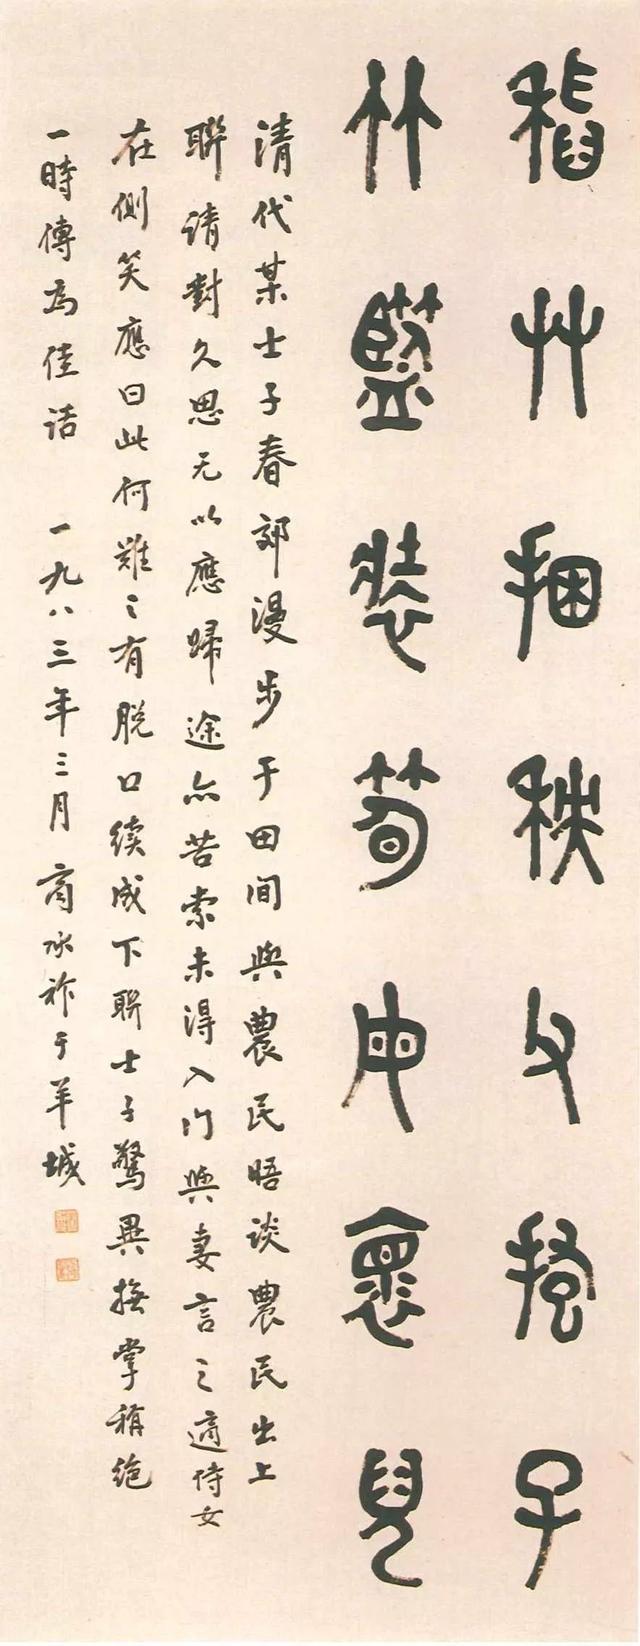 稻艸捆秧父抱子
竹籃裝筍母懷兒
清代某士子春郊漫步于田間與農民晤談農民出上
聯請對久思无以應歸途亦苦索未得入门與妻言之適侍女
在側笑應曰此何難之有脱口續成下聯士子驚異撫掌稱絶
一時傳為佳話 一九八三年三月 商承祚于羊城